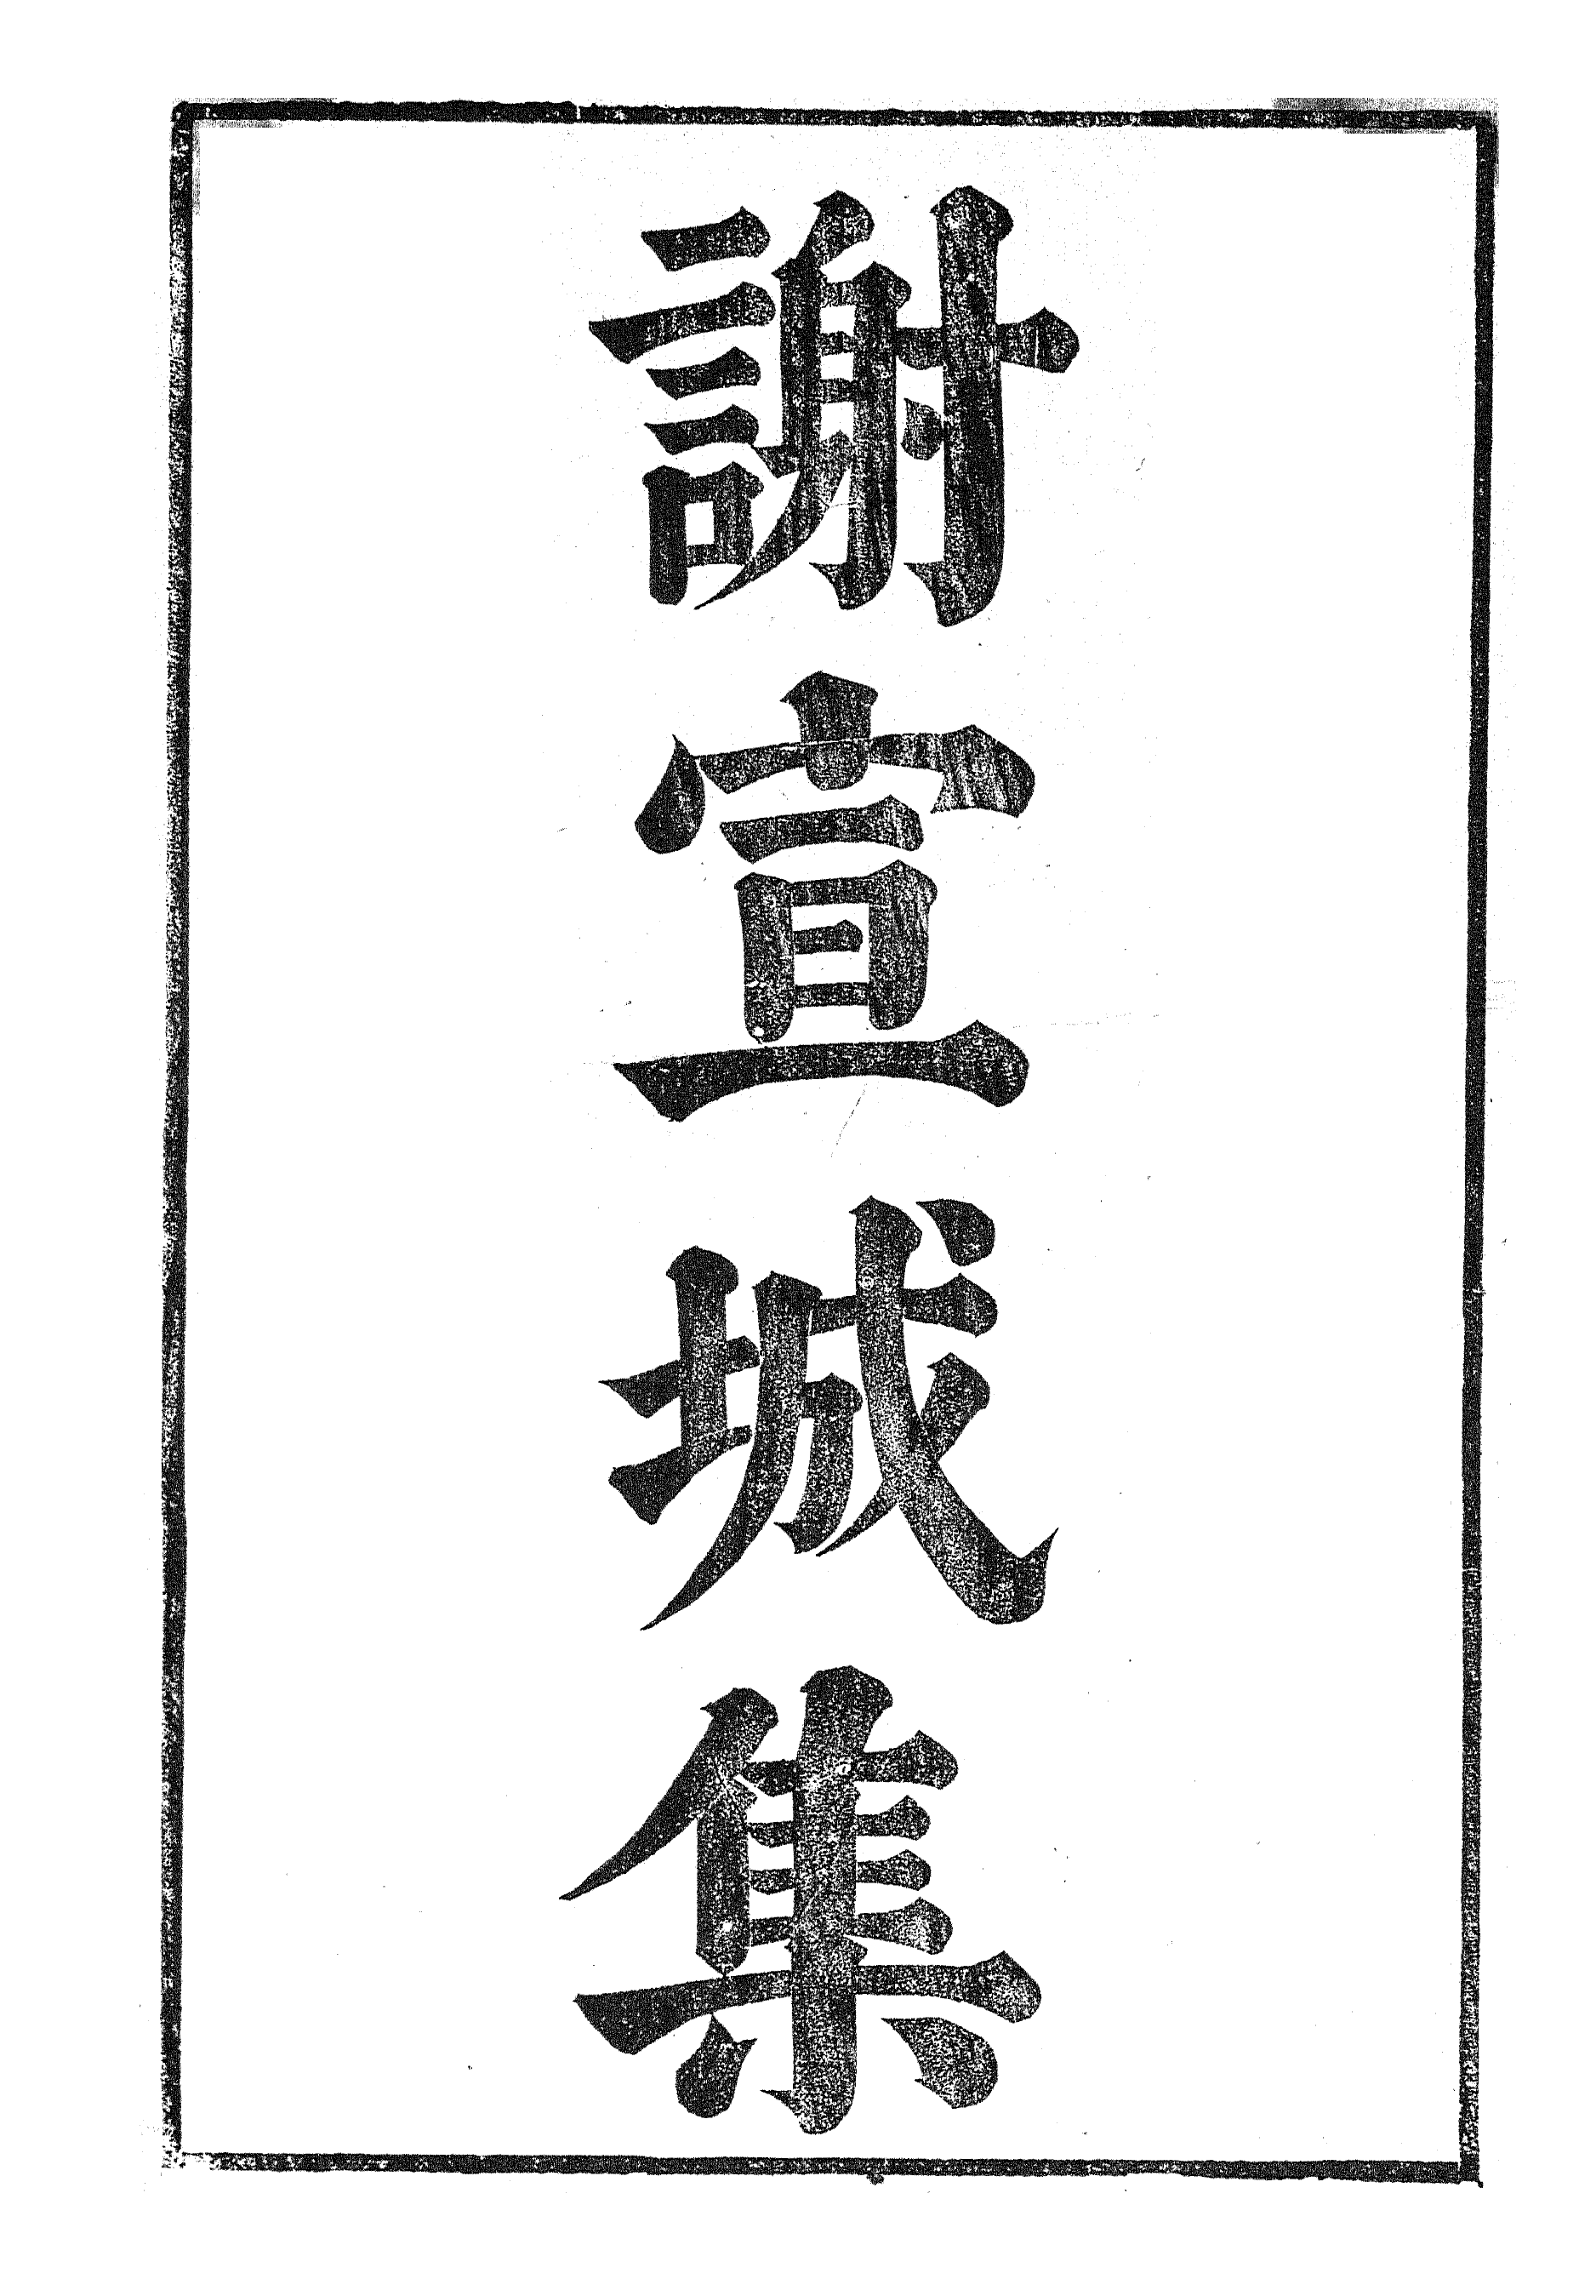 謝宣城集